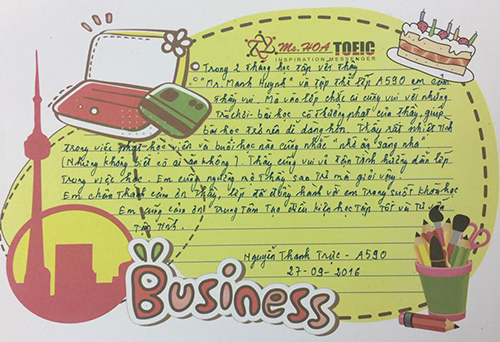 Ms. HOA TOEIC
INSPIRATION MESSENGER
Trong 2 tháng học tập với thầy
"Mr. Mạnh Huỳnh" và tập thể lớp A590 em cảm
thấy vui. Mà vào lớp chắc ai cũng vui với những
trò chơi bài học có thưởng phạt của thầy, giúp
bài học trở nên dễ dàng hơn. Thầy rất nhiệt tình
trong việc phạt học viên và buổi học nào cũng nhắc "nhớ ăn sáng nha"
(Nhưng không biết có ai ăn không). Thầy cũng vui vẻ tận tình hướng dẫn lớp
trong việc học. Em cũng nghĩ thầy sao trẻ mà giỏi vậy.
Em chân thành cảm ơn thầy, lớp đã đồng hành với em trong suốt khoá học
Em cũng cảm ơn trung tâm tạo điều kiện học tập tốt và tư vấn
tận tình.
Nguyễn Thanh Trực - A590
27-09-2016
Business